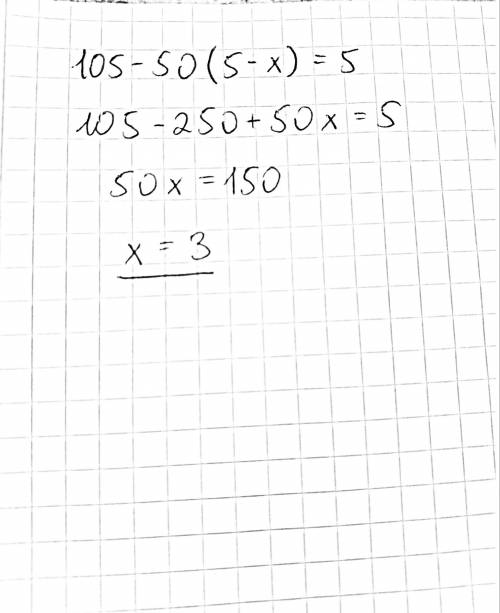 105-50(5-x)=5
105-250+50x=5
50x=150
x=3